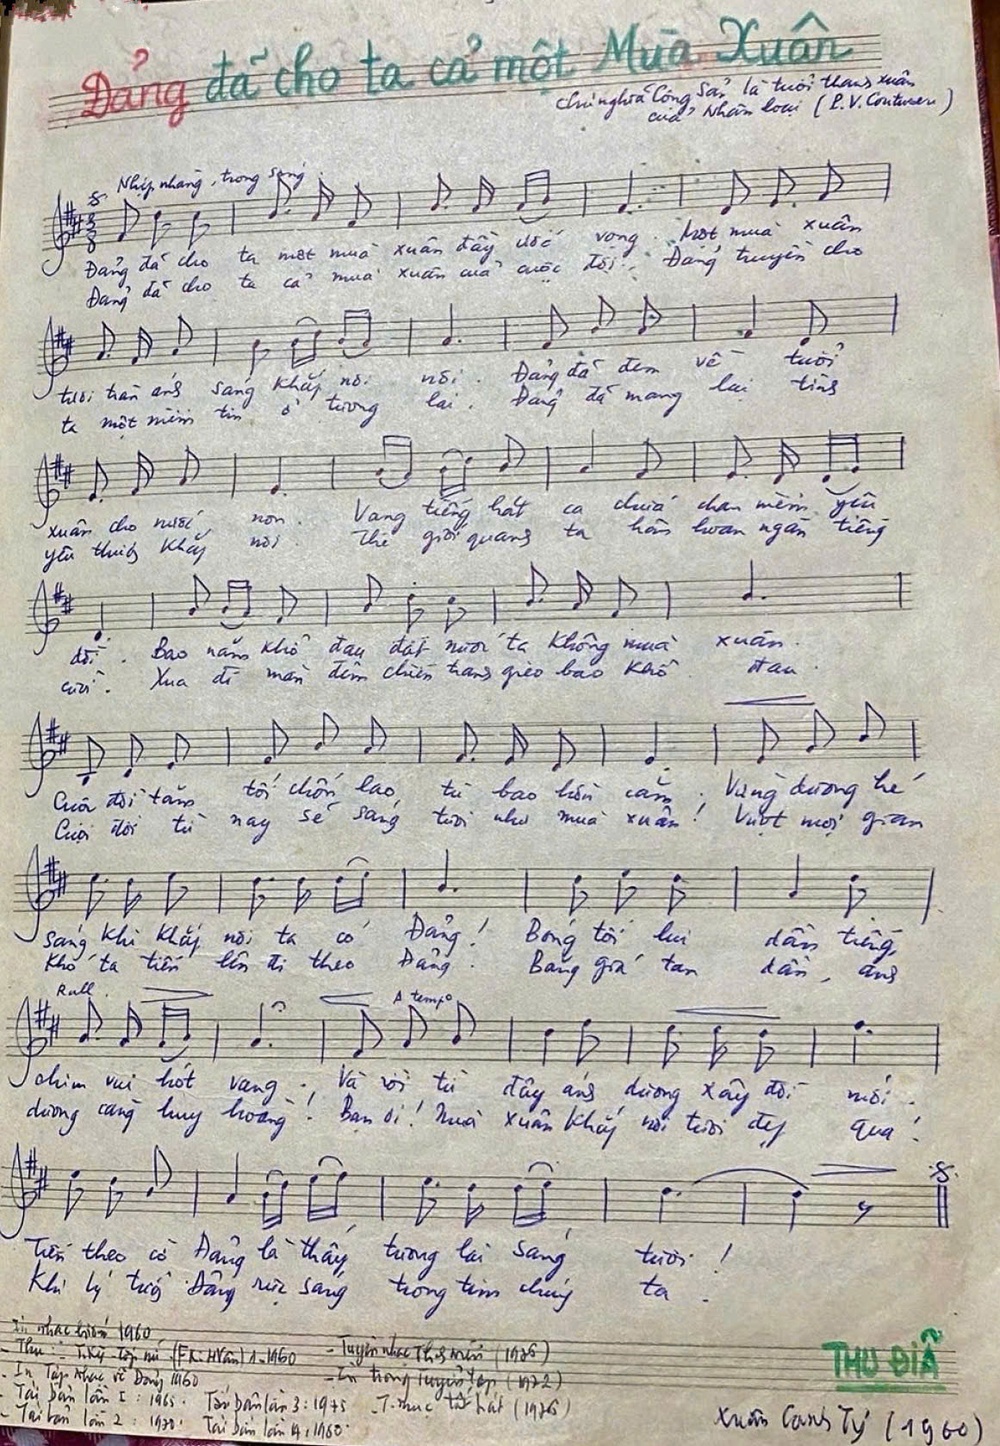 Đảng đã cho ta cả một Mùa Xuân
Chủ nghĩa Cộng Sản là tuổi thanh xuân
của Nhân loại (P.V. Couturier)
Nhịp nhàng, trong sáng
Đảng đã cho ta một mùa xuân đầy ước vọng. Một mùa xuân
Đảng đã cho ta cả mùa xuân của cuộc đời. Đảng truyền cho
tươi tràn ánh sáng khắp nơi nơi. Đảng đã đem về tuổi
ta một niềm tin ở tương lai. Đảng đã mang lại tình
xuân cho nước non. Vang tiếng hát ca chứa chan niềm yêu
yêu thương khắp nơi. Thế giới quanh ta hân hoan ngàn tiếng
đời. Bao năm khổ đau đất nước ta không mùa xuân.
cười. Xua đi màn đêm chiến tranh gieo bao khổ đau.
Cuộc đời tăm tối chốn lao tù bao hờn căm. Vừng dương hé
Cuộc đời từ nay sẽ sáng tươi như mùa xuân! Vượt mọi gian
sáng khi khắp nơi ta có Đảng! Bóng tối lui dần tiếng
khó ta tiến lên đi theo Đảng. Băng giá tan dần, ánh
Rall.
A tempo
chim vui hót vang. Và rồi từ đây ánh dương xây đời mới.
dương càng huy hoàng! Bạn ơi! Mùa xuân khắp nơi tươi đẹp quá!
Tiến theo cờ Đảng là thấy tương lai sáng tươi!
Khi lý tưởng Đảng rực sáng trong tim chúng ta.
1960
- Tuyển nhạc (1976)
1-1960
- In Tập nhạc về Đảng 1960
- In trong tuyển tập (1972)
- Tái bản lần 1: 1965. Tái bản lần 3: 1975
- Tái bản lần 2: 1970. Tái bản lần 4: 1960.
THU ĐIỀ
Xuân Canh Tý (1960)